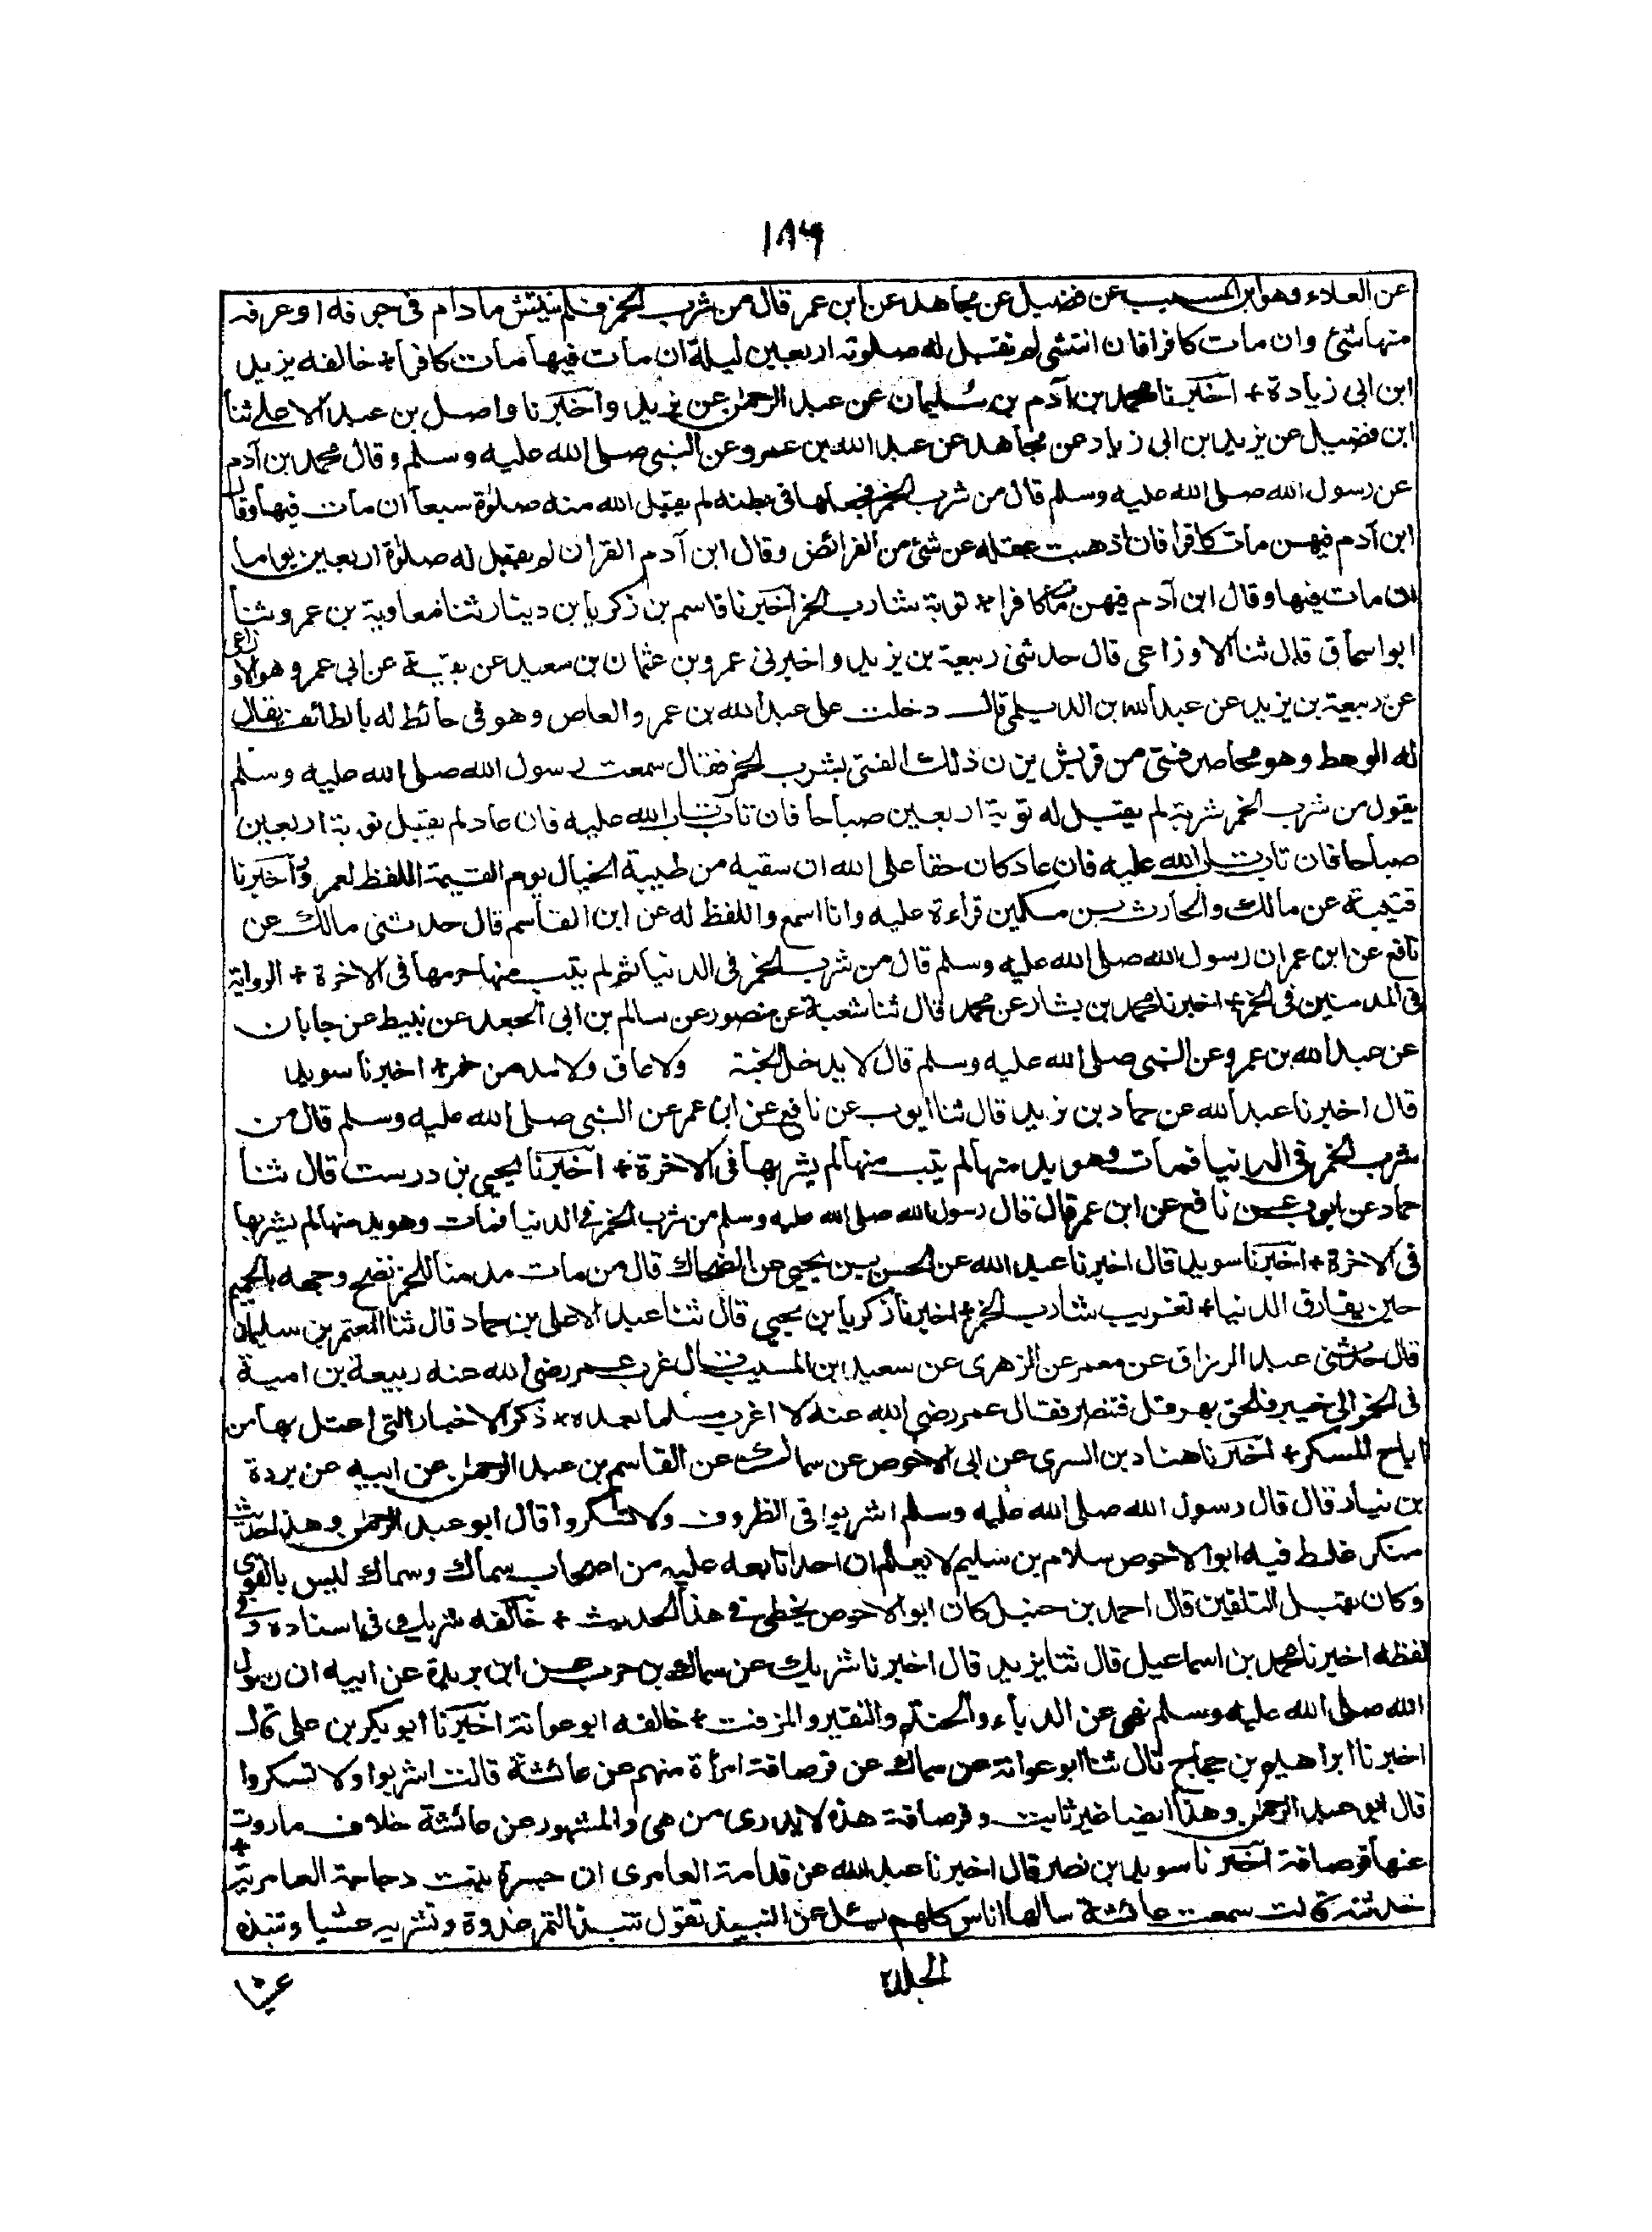 ١٨٦
عن العلاء وهو ابن المسيب عن فضيل عن مجاهد عن ابن عمر قال من شرب الخمر فلم ينتش مادام فى جوفه او عرقه
منها شئ وان مات كافرا فان انتشى لم تقبل له صلوته اربعين ليلة ان مات فيها مات كافرا + خالفه يزيد
ابن ابى زيادة + اخبرنا محمد بن آدم بن سليمان عن عبد الرحمن عن يزيد واخبرنا واصل بن عبد الاعلى ثنا
ابن فضيل عن يزيد بن ابى زياد عن مجاهد عن عبد الله بن عمرو عن النبى صلى الله عليه وسلم وقال محمد بن آدم
عن رسول الله صلى الله عليه وسلم قال من شرب الخمر فجعلها فى بطنه لم يقبل الله منه صلوة سبعا ان مات فيها وقال
ابن آدم فيهن مات كافرا فان اذهبت عقله عن شئ من الفرائض وقال ابن آدم القران لم يقبل له صلوة اربعين يوما
ان مات فيها وقال ابن آدم فيهن مات كافرا + توبة شارب الخمر اخبرنا قاسم بن زكريا بن دينار ثنا معاوية بن عمرو ثنا
ابو اسحاق قال ثنا الاوزاعى قال حدثنى ربيعة بن يزيد واخبرنى عمرو بن عثمان بن سعيد عن بقية عن ابى عمرو وهو الاوزاعى
عن ربيعة بن يزيد عن عبد الله بن الديلمى قال دخلت على عبد الله بن عمرو العاص وهو فى حائط له بالطائف يقال
له الوهط وهو محاصر فتى من قريش يزن ذلك الفتى بشرب الخمر فقال سمعت رسول الله صلى الله عليه وسلم
يقول من شرب الخمر شربة لم يقبل له توبة اربعين صباحا فان تاب تاب الله عليه فان عاد لم يقبل توبة اربعين
صباحا فان تاب تاب الله عليه فان عاد كان حقا على الله ان سقيه من طيبة الخبال يوم القيمة اللفظ لعمرو واخبرنا
قتيبة عن مالك والحارث بن مسكين قراءة عليه وانا اسمع واللفظ له عن ابن القاسم قال حدثنى مالك عن
نافع عن ابن عمر ان رسول الله صلى الله عليه وسلم قال من شرب الخمر فى الدنيا ثم لم يتب منها حرمها فى الاخرة + الرواية
فى المدمنين فى الخمر + اخبرنا محمد بن بشار عن محمد قال ثنا شعبة عن منصور عن سالم بن ابى الجعد عن نبيط عن جابان
عن عبد الله بن عمرو عن النبى صلى الله عليه وسلم قال لا يدخل الجنة ولا عاق ولا مدمن خمر + اخبرنا سويد
قال اخبرنا عبد الله عن حماد بن زيد قال ثنا ايوب عن نافع عن ابن عمر عن النبى صلى الله عليه وسلم قال من
شرب الخمر فى الدنيا فمات وهو يدمنها لم يتب منها لم يشربها فى الاخرة + اخبرنا يحيى بن درست قال ثنا
حماد عن ايوب عن نافع عن ابن عمر قال قال رسول الله صلى الله عليه وسلم من شرب الخمر فى الدنيا فمات وهو يدمنها لم يشربها
فى الاخرة + اخبرنا سويد قال اخبرنا عبد الله عن الحسن بن يحيى عن الضحاك قال من مات مدمنا للخمر نضح وجهه بالحميم
حين يفارق الدنيا + تغريب شارب الخمر + اخبرنا زكريا بن يحيى قال ثنا عبد الاعلى بن حماد قال ثنا المعتمر بن سليمان
قال حدثنى عبد الرزاق عن معمر عن الزهرى عن سعيد ابن المسيب قال غرب عمر رضى الله عنه ربيعة بن امية
فى الخمر الى خيبر فلحق بهرقل فتنصر فقال عمر رضى الله عنه لا اغرب مسلما بعده + ذكر الاخبار التى اعتل بها من
اباح المسكر + اخبرنا هناد بن السرى عن ابى الاحوص عن سماك عن القاسم بن عبد الرحمن عن ابيه عن بردة
بن نيار قال قال رسول الله صلى الله عليه وسلم اشربوا فى الظروف ولا تسكروا قال ابو عبد الرحمن وهذا حديث
منكر غلط فيه ابو الاحوص سلام بن سليم لا يعلم ان احدا تابعه عليه من اصحاب سماك وسماك ليس بالقوى
وكان يقبل التلقين قال احمد بن حنبل كان ابو الاحوص يخطى فى هذا الحديث + خالفه شريك فى اسناده وفى
لفظه اخبرنا محمد بن اسماعيل قال ثنا يزيد قال اخبرنا شريك عن سماك بن حرب عن ابن بريدة عن ابيه ان رسول
الله صلى الله عليه وسلم نهى عن الدباء والحنتم والنقير والمزفت + خالفه ابو عوانة اخبرنا ابو بكر بن على قال
اخبرنا ابراهيم بن حجاج قال ثنا ابو عوانة عن سماك عن قرصافة امرأة منهم عن عائشة قالت اشربوا ولا تسكروا
قال ابو عبد الرحمن وهذا ايضا غير ثابت وقرصافة هذه لا يدرى من هى والمشهور عن عائشة خلاف ما روت
عنها قرصافة اخبرنا سويد بن نصر قال اخبرنا عبد الله عن قدامة العامرى ان جسرة بنت دجاجة العامرية +
حدثته قالت سمعت عائشة سالها اناس كلهم يسئل عن النبيذ تقول ننبذ التمر غدوة ونشربه عشيا وننبذه
الجلد٢
عشيا